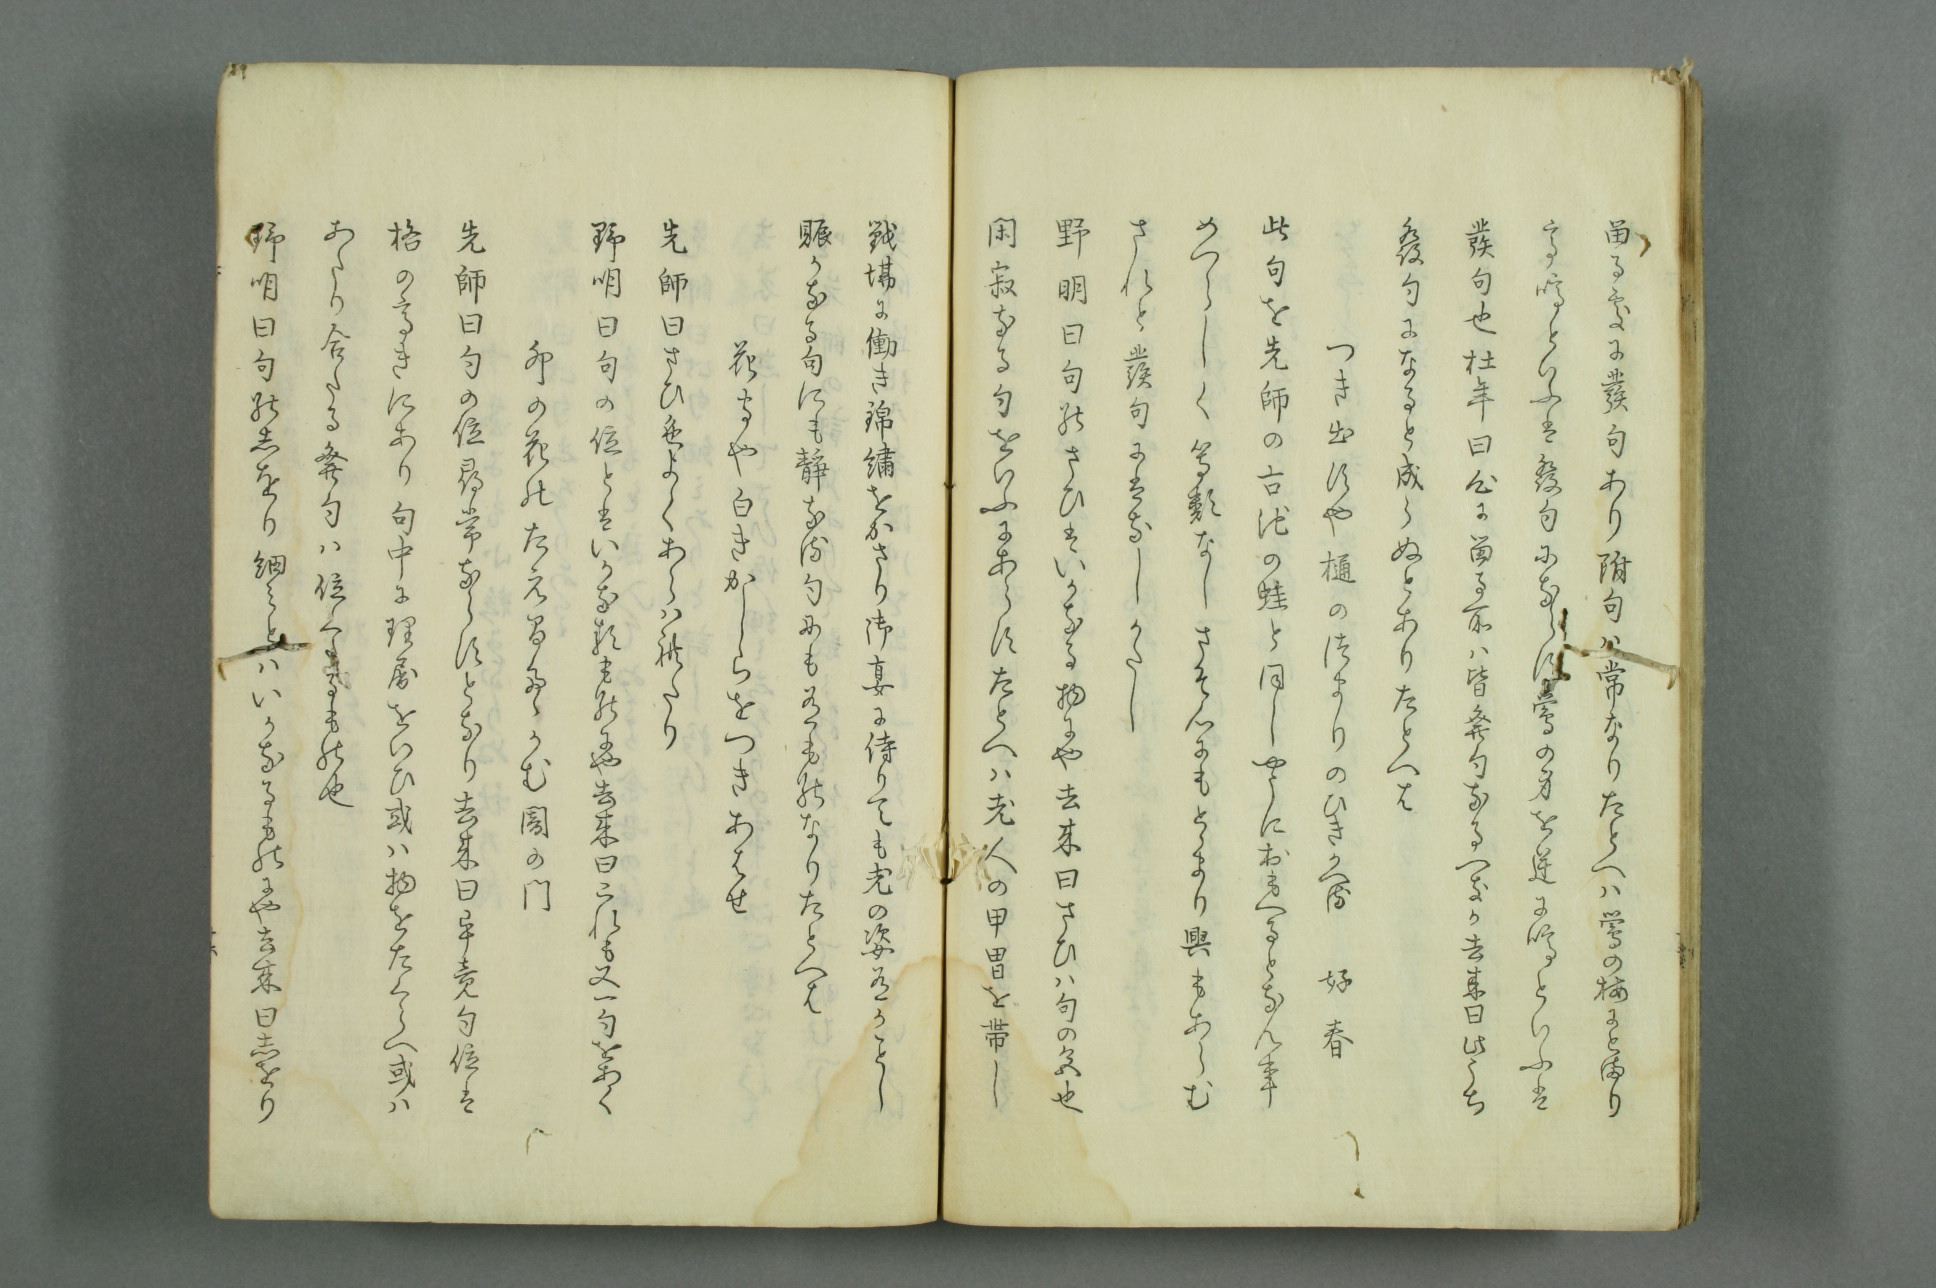 留る処に發句あり附句ハ常なりたとへハ鶯の梅にとまり
て啼といふは發句にならす鶯の身を逆に啼といふは
發句也杜年曰心に留る所ハ皆發句なるへきか去来曰此うち
發句になると成らぬとありたとへは
つき出すや樋のつまりのひきかへる　好春
此句を先師の古池の蛙と同しやうにおもへるとなん事
めつらしく等類なしさそ心にもとまり興もあらむ
されと發句にはなしかたし
野明曰句のさひはいかなる物にや去来曰さひハ句の色也
閑寂なる句をいふにあらすたとへハ老人の甲冑を帯し
戦場に働き錦繡をかさり御宴に侍りても老の姿有かことし
賑かなる句にも静なる句にも有もの なりたとへは
花守や白きかしらをつきあはせ
先師曰さひ色よくあらハれたり
野明曰句の位とはいかなるものにや去来曰これも又一句をあく
卯の花のたえ間たゝかむ闇の門
先師曰句の位尋常ならすとなり去来曰畢竟句位は
格の高きにあり句中に理屈をいひ或ハ物をたくらへ或ハ
あたり合たる發句ハ位くたるもの也
野明曰句のしをり細みとハいかなるものにや去来曰しをり